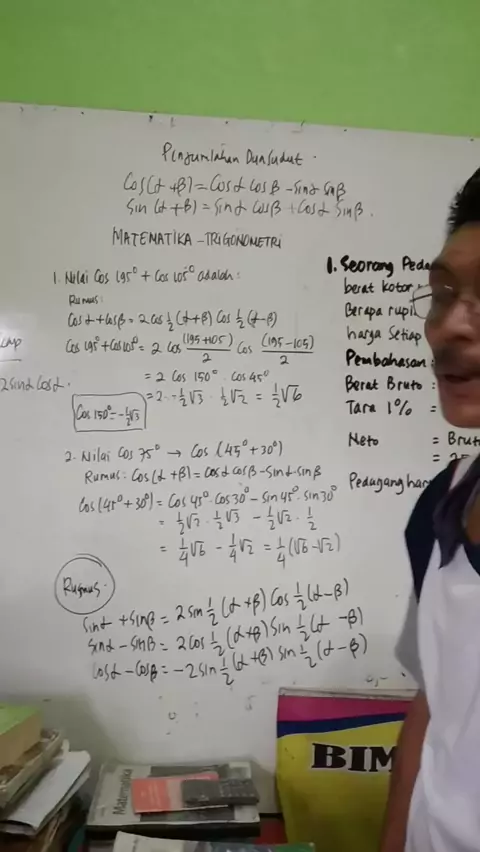 Penjumlahan Dua Sudut.
Cos(α+β) = Cosα Cosβ - Sinα Sinβ
Sin(α+β) = Sinα Cosβ + Cosα Sinβ.
MATEMATIKA - TRIGONOMETRI
1. Nilai Cos 195° + Cos 105° adalah:
Rumus:
Cosα + Cosβ = 2 Cos ½(α+β) Cos ½(α-β)
Cos 195° + Cos 105° = 2 Cos (195+105)/2 Cos (195-105)/2
= 2 Cos 150° . Cos 45°
= 2 . -½√3 . ½√2 = ½√6
Cos 150° = -½√3
2 Sinα Cosα.
2. Nilai Cos 75° → Cos (45°+30°)
Rumus: Cos(α+β) = Cosα Cosβ - Sinα . Sinβ
Cos(45°+30°) = Cos 45° . Cos 30° - Sin 45° . Sin 30°
= ½√2 . ½√3 - ½√2 . ½
= ¼√6 - ¼√2 = ¼(√6 - √2)
Rumus.
Sinα + Sinβ = 2 Sin ½(α+β) Cos ½(α-β)
Sinα - Sinβ = 2 Cos ½(α+β) Sin ½(α-β)
Cosα - Cosβ = -2 Sin ½(α+β) Sin ½(α-β)
1. Seorang Peda
berat kotor
Berapa rupi
harga Setiap
Pembahasan:
Berat Bruto :
Tara 1% =
Neto = Brut
Pedagang har
Matematika
BIM